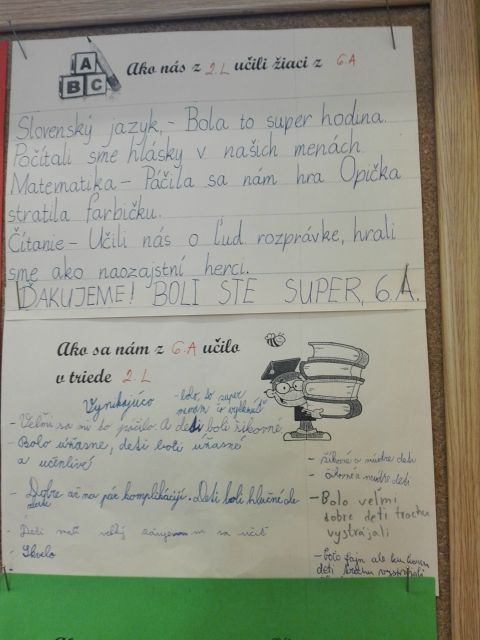 A
B C
Ako nás z 2.L učili žiaci z 6.A
Slovenský jazyk,- Bola to super hodina.
Počítali sme hlásky v našich menách
Matematika - Páčila sa nám hra Opička
stratila farbičku.
Čítanie - Učili nás o ľud rozprávke, hrali
sme ako naozajstní herci.
ĎAKUJEME! BOLI STE SUPER, 6.A.
Ako sa nám z 6.A učilo
v triede 2.L
Vynikajúco
- bolo to super
- Veľmi sa mi to páčilo. A deti boli šikovné
- Bolo úžasne, deti boli úžasné
a učenlivé
- Dobre až na pár komplikácií. Deti boli hlučné ale
- Deti mali veľký
- Skvelo
- šikovné a múdre deti
- šikovné a múdre deti
- Bolo veľmi
dobre deti trochu
vystrájali
- bolo fajn ale ku koncu
deti trochu vystrájali